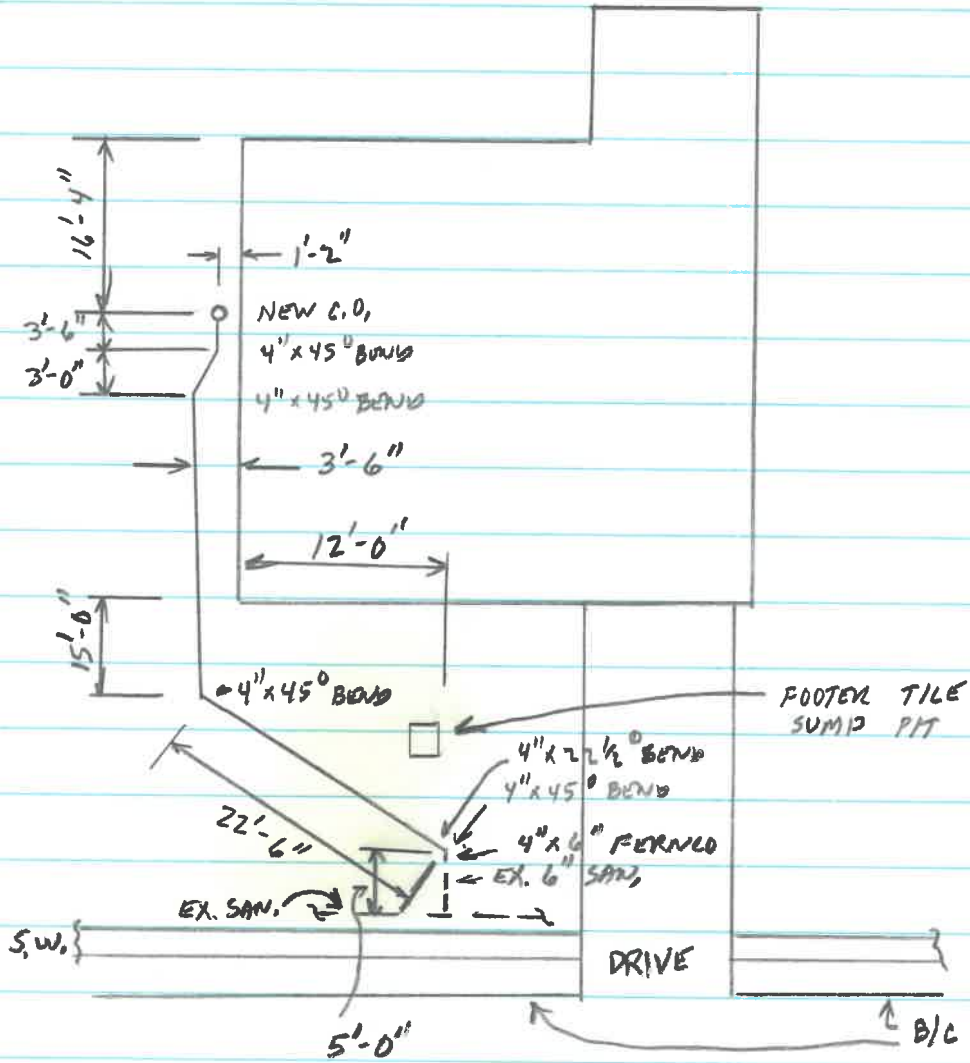 16'-4"
1'-2"
NEW C.O.
3'-6"
4" x 45° BEND
3'-0"
4" x 45° BEND
3'-6"
12'-0"
15'-0"
4" x 45° BEND
FOOTER TILE
SUMP PIT
4" x 22 1/2° BEND
4" x 45° BEND
22'-6"
4" x 6" FERNCO
EX. 6" SAN.
EX. SAN.
S.W.
DRIVE
5'-0"
B/C